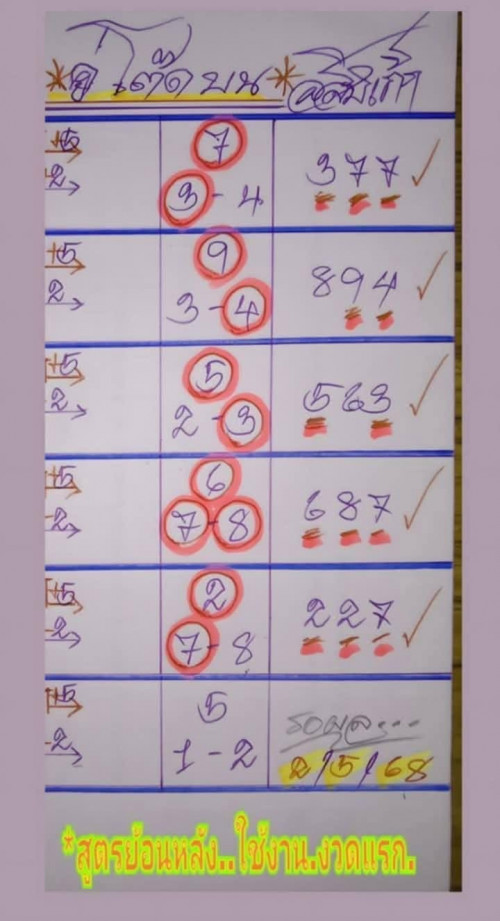 * โต๊ด บน *
+5
7
2
3 - 4
377 ✓
+5
9
2
3 - 4
894 ✓
+5
5
2
2 - 3
563 ✓
+5
6
2
7 - 8
687 ✓
+5
2
2
7 - 8
227 ✓
+5
5
2
1 - 2
รอผล...
2/5/68
*สูตรย้อนหลัง..ใช้งาน.งวดแรก.